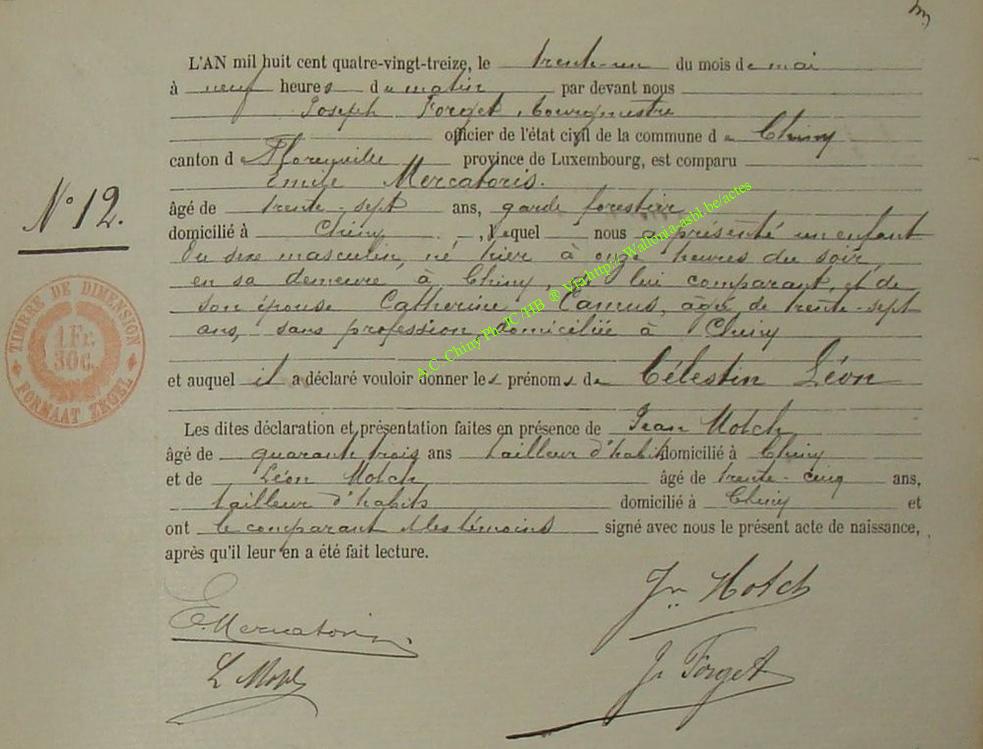 L'AN mil huit cent quatre-vingt-treize, le trente-un du mois de mai
à neuf heures du matin par devant nous
Joseph Forget, bourgmestre
officier de l'état civil de la commune de Chiny
canton de Florenville province de Luxembourg, est comparu
Emile Mercatoris.
âgé de trente-sept ans, garde forestier
N° 12.
domicilié à Chiny, lequel nous a présenté un enfant
du sexe masculin, né hier à onze heures du soir,
en sa demeure à Chiny, de lui comparant, et de
son épouse Catherine Camus, âgée de trente-sept
ans, sans profession, domiciliée à Chiny
TIMBRE DE DIMENSION
1 Fr.
30 C.
FORMAAT ZEGEL
A.C. Chiny Ph. JC /HB ® Via http://Wallonia-asbl.be/actes
et auquel il a déclaré vouloir donner les prénoms de Célestin Léon
Les dites déclaration et présentation faites en présence de Jean Hotch
âgé de quarante trois ans tailleur d'habits domicilié à Chiny
et de Léon Hotch âgé de trente-cinq ans,
tailleur d'habits domicilié à Chiny et
ont le comparant et les témoins signé avec nous le présent acte de naissance,
après qu'il leur en a été fait lecture.
Jn Hotch
E. Mercatoris
J. Forget